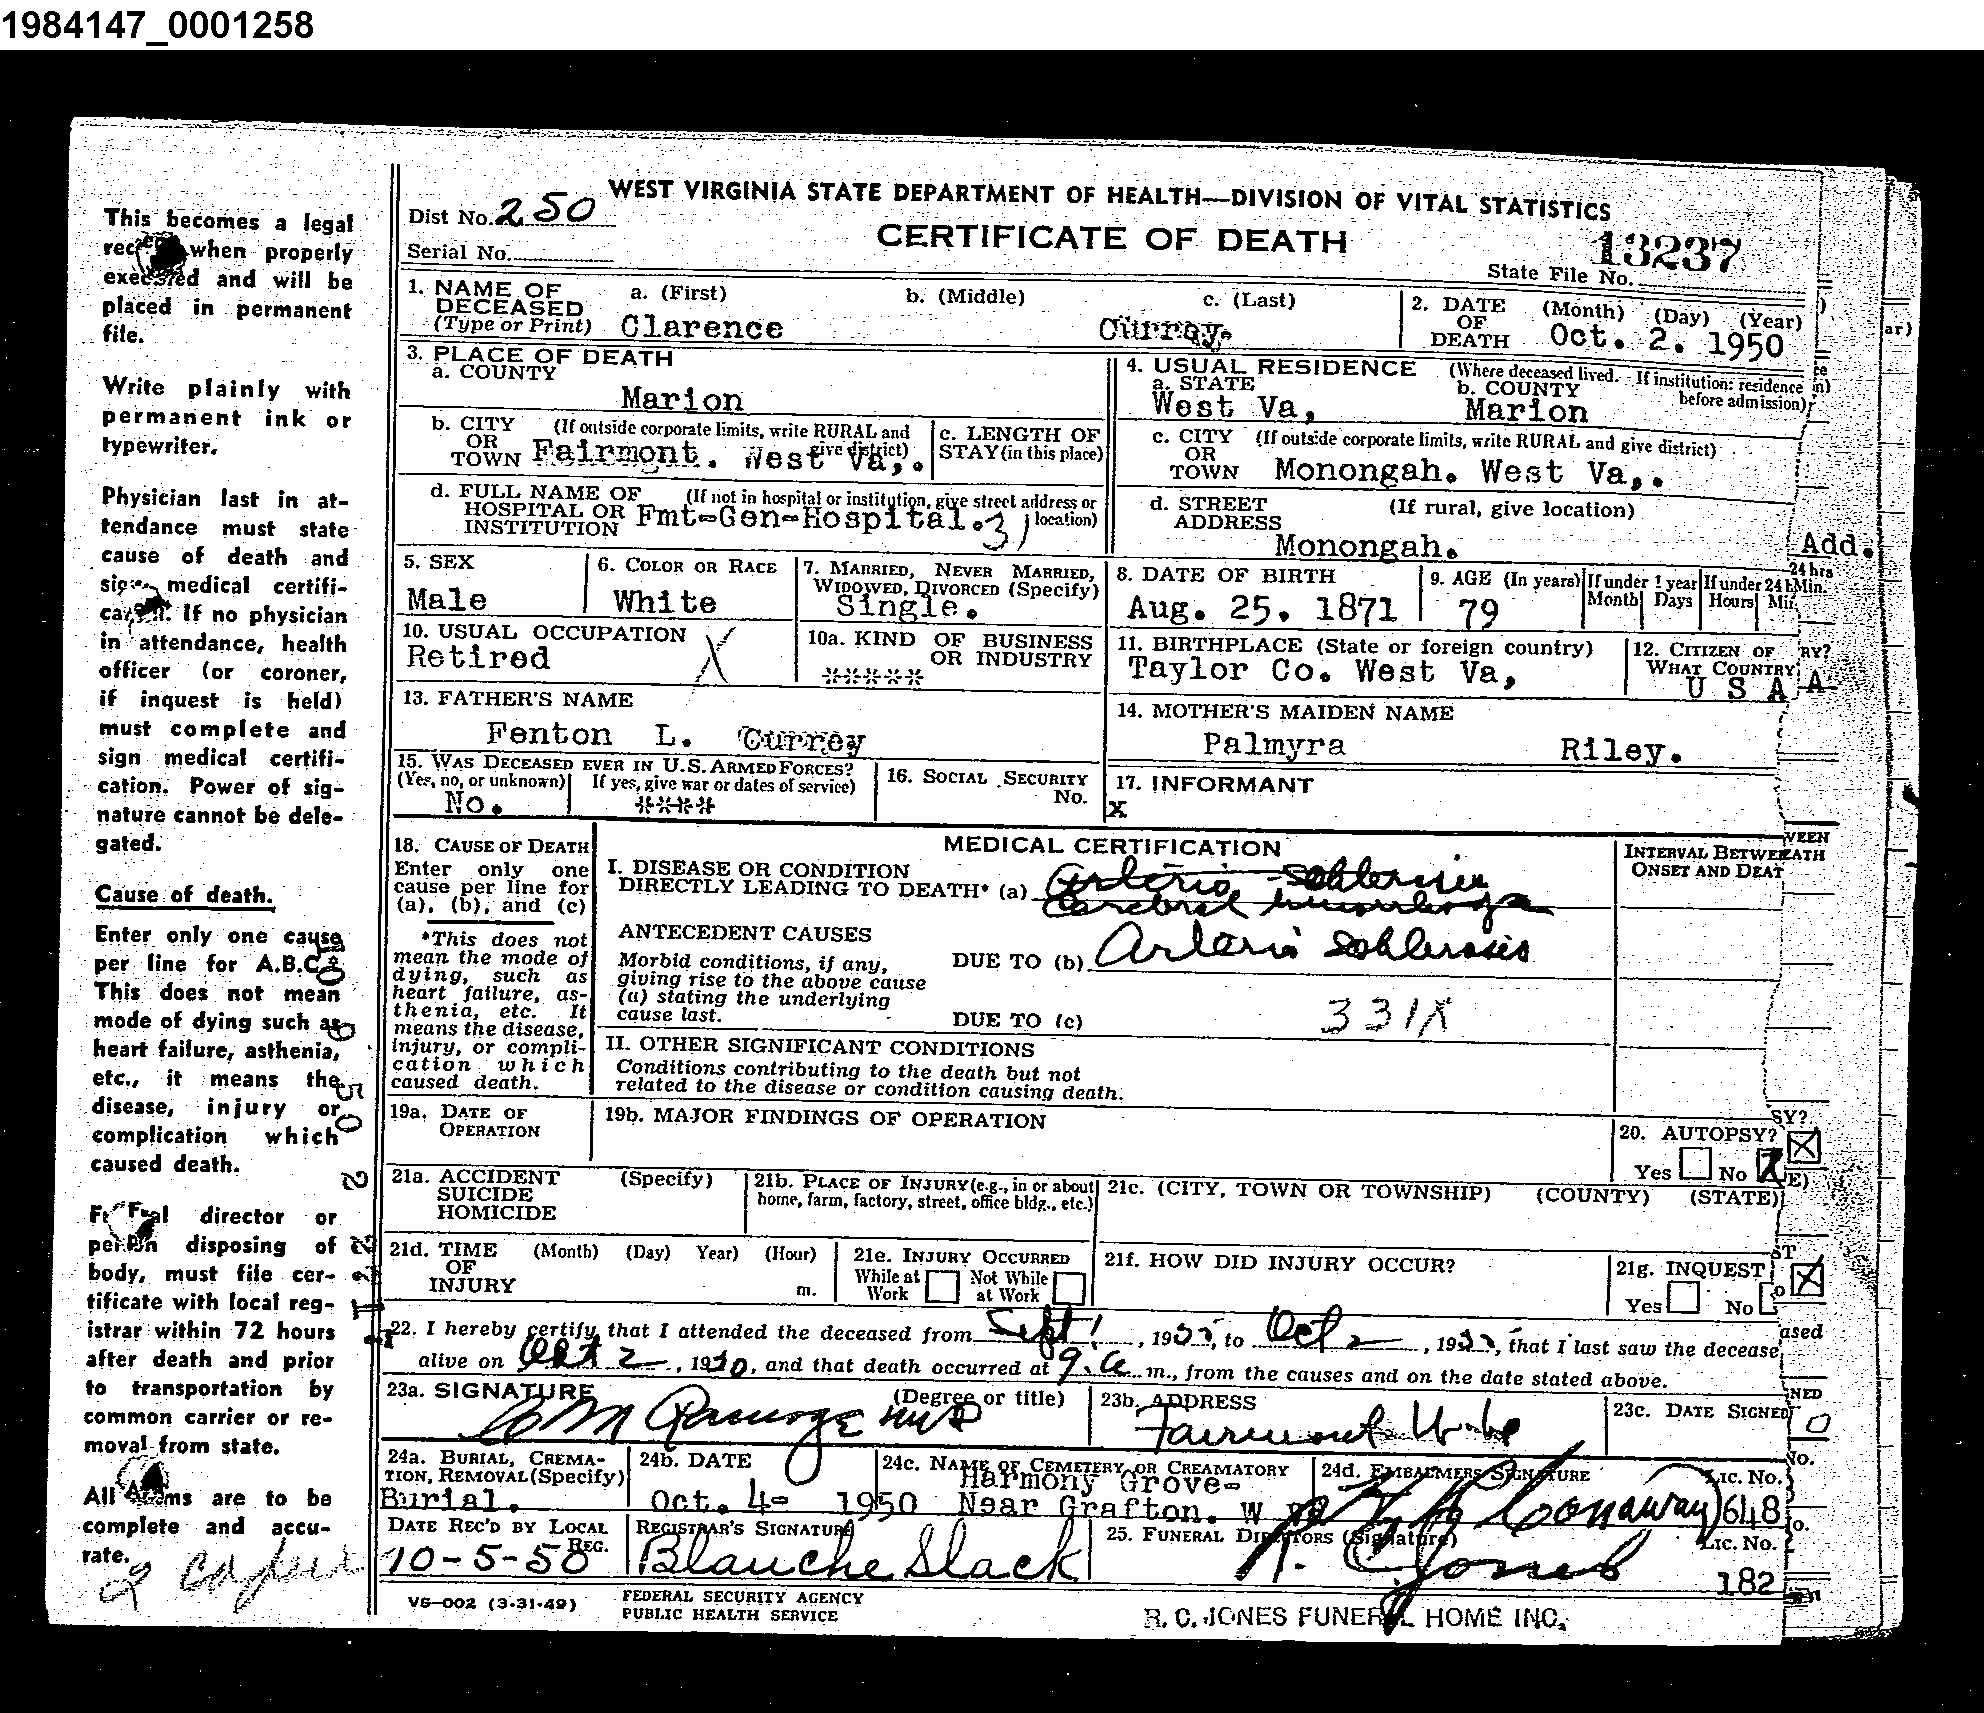 1984147_0001258
WEST VIRGINIA STATE DEPARTMENT OF HEALTH—DIVISION OF VITAL STATISTICS
Dist No. 250
CERTIFICATE OF DEATH
Serial No.
13237
State File No.
This becomes a legal
when properly
and will be
placed in permanent
file.
Write plainly with
permanent ink or
typewriter.
Physician last in at-
tendance must state
cause of death and
medical certifi-
If no physician
in attendance, health
officer (or coroner,
if inquest is held)
must complete and
sign medical certifi-
cation. Power of sig-
nature cannot be dele-
gated.
Cause of death.
Enter only one cause
per line for A.B.C.
This does not mean
mode of dying such as
heart failure, asthenia,
etc., it means the
disease, injury or
complication which
caused death.
director or
disposing of
body, must file cer-
tificate with local reg-
istrar within 72 hours
after death and prior
to transportation by
common carrier or re-
moval from state.
All are to be
complete and accu-
rate.
2
1. NAME OF DECEASED (Type or Print) a. (First) b. (Middle) c. (Last)
Clarence Currey.
2. DATE OF DEATH (Month) (Day) (Year)
Oct. 2. 1950
3. PLACE OF DEATH
a. COUNTY
Marion
4. USUAL RESIDENCE (Where deceased lived. If institution: residence before admission)
a. STATE b. COUNTY
West Va, Marion
b. CITY OR TOWN (If outside corporate limits, write RURAL and give district)
Fairmont. West Va,.
c. LENGTH OF STAY (in this place)
c. CITY OR TOWN (If outside corporate limits, write RURAL and give district)
Monongah. West Va,.
d. FULL NAME OF HOSPITAL OR INSTITUTION (If not in hospital or institution, give street address or location)
Fmt-Gen-Hospital. 31
d. STREET ADDRESS (If rural, give location)
Monongah.
Add.
5. SEX
Male
6. COLOR OR RACE
White
7. MARRIED, NEVER MARRIED, WIDOWED, DIVORCED (Specify)
Single.
8. DATE OF BIRTH
Aug. 25. 1871
9. AGE (In years) If under 1 year If under 24 hrs
Month Days Hours Min.
79
10. USUAL OCCUPATION
Retired X
10a. KIND OF BUSINESS OR INDUSTRY
*****
11. BIRTHPLACE (State or foreign country)
Taylor Co. West Va,
12. CITIZEN OF WHAT COUNTRY
U S A
13. FATHER'S NAME
Fenton L. Currey
14. MOTHER'S MAIDEN NAME
Palmyra Riley.
15. WAS DECEASED EVER IN U.S. ARMED FORCES?
(Yes, no, or unknown) If yes, give war or dates of service)
No. ****
16. SOCIAL SECURITY No.
17. INFORMANT
X
18. CAUSE OF DEATH
Enter only one
cause per line for
(a), (b), and (c)
*This does not
mean the mode of
dying, such as
heart failure, as-
thenia, etc. It
means the disease,
injury, or compli-
cation which
caused death.
MEDICAL CERTIFICATION
INTERVAL BETWEEN
ONSET AND DEATH
I. DISEASE OR CONDITION
DIRECTLY LEADING TO DEATH* (a) Arterio Schlerosis
Cerebral hemorrhage
ANTECEDENT CAUSES
Morbid conditions, if any,
giving rise to the above cause
(a) stating the underlying
cause last.
DUE TO (b) Arterio Schlerosis
DUE TO (c) 331X
II. OTHER SIGNIFICANT CONDITIONS
Conditions contributing to the death but not
related to the disease or condition causing death.
19a. DATE OF OPERATION
19b. MAJOR FINDINGS OF OPERATION
20. AUTOPSY?
Yes No X
21a. ACCIDENT SUICIDE HOMICIDE (Specify)
21b. PLACE OF INJURY (e.g., in or about home, farm, factory, street, office bldg., etc.)
21c. (CITY, TOWN OR TOWNSHIP) (COUNTY) (STATE)
21d. TIME OF INJURY (Month) (Day) Year) (Hour) m.
21e. INJURY OCCURRED
While at Work Not While at Work
21f. HOW DID INJURY OCCUR?
21g. INQUEST
Yes No
22. I hereby certify that I attended the deceased from Sept 1, 19 to Oct 2, 19, that I last saw the deceased
alive on Oct 2, 1950, and that death occurred at 9. a m., from the causes and on the date stated above.
23a. SIGNATURE (Degree or title)
MD
23b. ADDRESS
Fairmont W. Va
23c. DATE SIGNED
24a. BURIAL, CREMA-
TION, REMOVAL (Specify)
Burial.
24b. DATE
Oct. 4- 1950
24c. NAME OF CEMETERY OR CREAMATORY
Harmony Grove-
Near Grafton. W
24d. EMBALMERS SIGNATURE Lic. No.
Conaway 648
DATE REC'D BY LOCAL REG.
10-5-50
REGISTRAR'S SIGNATURE
Blanche Slack
25. FUNERAL DIRECTORS (Signature) Lic. No.
R. C. Jones 182
VS-002 (3-31-49)
FEDERAL SECURITY AGENCY
PUBLIC HEALTH SERVICE
R. C. JONES FUNERAL HOME INC.